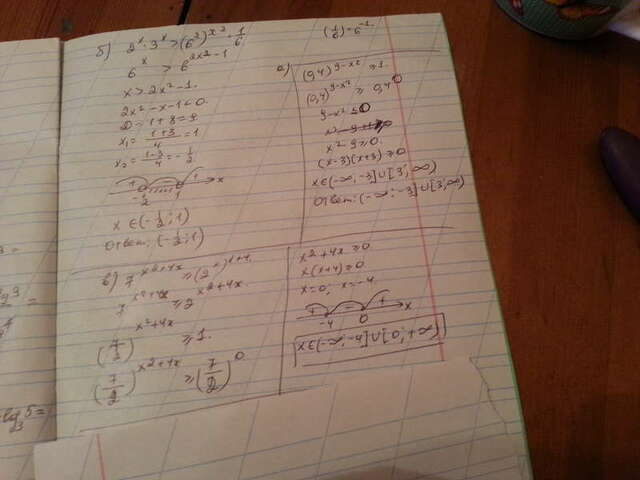 б) 2^x · 3^x > (6^2)^{x^2} · 1/6
6^x > 6^{2x^2-1}
x > 2x^2 - 1.
2x^2 - x - 1 < 0.
D = 1 + 8 = 9
x₁ = (1+3)/4 = 1
x₂ = (1-3)/4 = -1/2
+ - + x
-1/2 1
x ∈ (-1/2; 1)
Ответ: (-1/2; 1)
(1/6) = 6^{-1}
а) (0,4)^{9-x^2} ≥ 1.
(0,4)^{9-x^2} ≥ 0,4^0
9 - x^2 ≤ 0
x^2 - 9 ≥ 0.
(x-3)(x+3) ≥ 0
x ∈ (-∞; -3] ∪ [3; ∞)
Ответ: (-∞; -3] ∪ [3; ∞)
в) 7^{x^2+4x} ≥ (2^x)^{x+4}.
7^{x^2+4x} ≥ 2^{x^2+4x}
(7/2)^{x^2+4x} ≥ 1.
(7/2)^{x^2+4x} ≥ (7/2)^0
x^2 + 4x ≥ 0
x(x+4) ≥ 0
x = 0; x = -4
+ - + x
-4 0
x ∈ (-∞; -4] ∪ [0; +∞)